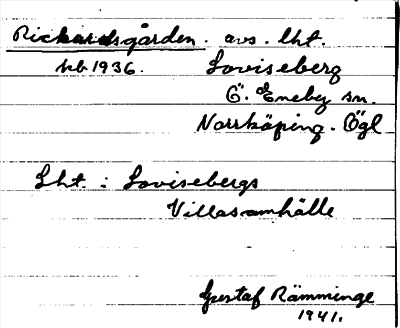 Rickardsgården. avs. lht.
kb 1936. Loviseberg
Ö. Eneby sn.
Norrköping. Ögl
Lht. : Lovisebergs
Villasamhälle
Gustaf Rämminge
1941.